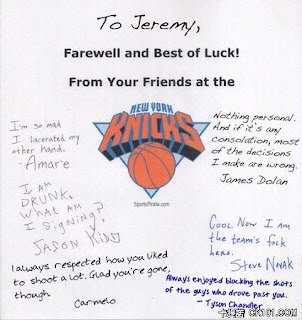 To Jeremy,
Farewell and Best of Luck!
From Your Friends at the
NEW YORK
KNICKS
SportsPickle.com
I'm so mad
I lacerated my
other hand.
- Amar'e
Nothing personal.
And if it's any
consolation, most
of the decisions
I make are wrong.
James Dolan
I AM
DRUNK.
WHAT AM
I SIGNING?
JASON KIDD
Cool. Now I am
the team's folk
hero.
Steve Novak
I always respected how you liked
to shoot a lot. Glad you're gone,
though.
Carmelo
Always enjoyed blocking the shots
of the guys who drove past you.
- Tyson Chandler
卡提諾 CK101.COM